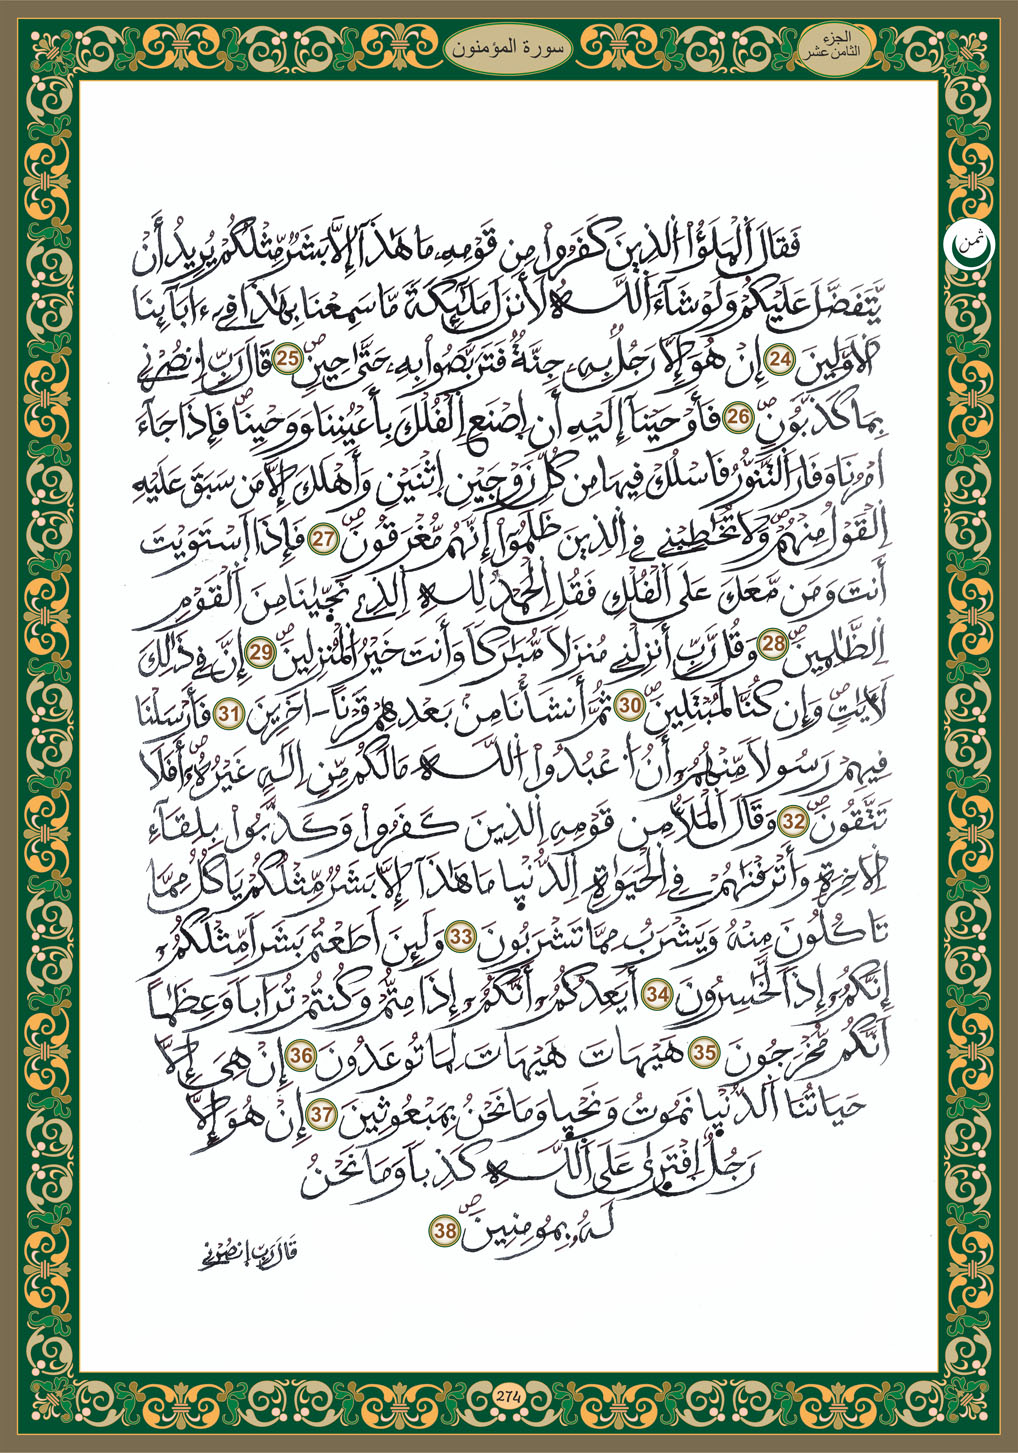 الجزء
الثامن عشر
سورة المؤمنون
ثمن
فَقَالَ اَ۬لْمَلَؤُاْ اُ۬لذِينَ كَفَرُواْ مِن قَوْمِهِۦ مَا هَٰذَآ إِلَّا بَشَرٞ مِّثْلُكُمْ يُرِيدُ أَنْ
يَّتَفَضَّلَ عَلَيْكُمْ وَلَوْ شَآءَ اَ۬للَّهُ لَأَنزَلَ مَلَٰٓئِكَةٗ مَّا سَمِعْنَا بِهَٰذَا فِےٓ ءَابَآئِنَا
اَ۬لَاوَّلِينَ 24 إِنْ هُوَ إِلَّا رَجُلُۢ بِهِۦ جِنَّةٞ فَتَرَبَّصُواْ بِهِۦ حَتَّىٰ حِينٖۖ 25 قَالَ رَبِّ اِ۟نصُرْنِے
بِمَا كَذَّبُونِۖ 26 فَأَوْحَيْنَآ إِلَيْهِ أَنِ اِ۪صْنَعِ اِ۬لْفُلْكَ بِأَعْيُنِنَا وَوَحْيِنَاۖ فَإِذَا جَآءَ
امْرُنَا وَفَارَ اَ۬لتَّنُّورُ فَاسْلُكْ فِيهَا مِن كُلِّ زَوْجَيْنِ اِ۪ثْنَيْنِ وَأَهْلَكَ إِلَّا مَن سَبَقَ عَلَيْهِ
اِ۬لْقَوْلُ مِنْهُمْۖ وَلَا تُخَٰطِبْنِے فِے اِ۬لذِينَ ظَلَمُوٓاْ إِنَّهُم مُّغْرَقُونَۖ 27 فَإِذَا اَ۪سْتَوَيْتَ
أَنتَ وَمَن مَّعَكَ عَلَى اَ۬لْفُلْكِ فَقُلِ اِ۬لْحَمْدُ لِلهِ اِ۬لذِے نَجَّيٰنَا مِنَ اَ۬لْقَوْمِ
اِ۬لظَّٰلِمِينَۖ 28 وَقُل رَّبِّ أَنزِلْنِے مُنزَلاٗ مُّبَٰرَكاٗ وَأَنتَ خَيْرُ اُ۬لْمُنزِلِينَۖ 29 إِنَّ فِے ذَٰلِكَ
لَأٓيَٰتٖۖ وَإِن كُنَّا لَمُبْتَلِينَۖ 30 ثُمَّ أَنشَأْنَا مِنۢ بَعْدِهِمْ قَرْناً ـ اخَرِينَۖ 31 فَأَرْسَلْنَا
فِيهِمْ رَسُولاٗ مِّنْهُمُۥٓ أَنُ اُ۟عْبُدُواْ اُ۬للَّهَ مَا لَكُم مِّنِ اِلَٰهٍ غَيْرُهُۥٓۖ أَفَلَا
تَتَّقُونَۖ 32 وَقَالَ اَ۬لْمَلَأُ مِن قَوْمِهِ اِ۬لذِينَ كَفَرُواْ وَكَذَّبُواْ بِلِقَآءِ
اِ۬لَاخِرَةِ وَأَتْرَفْنَٰهُمْ فِے اِ۬لْحَيَوٰةِ اِ۬لدُّنْيَا مَا هَٰذَآ إِلَّا بَشَرٞ مِّثْلُكُمْ يَاكُلُ مِمَّا
تَاكُلُونَ مِنْهُ وَيَشْرَبُ مِمَّا تَشْرَبُونَ 33 وَلَئِنَ اَطَعْتُم بَشَراٗ مِّثْلَكُمُۥٓ
إِنَّكُمُۥٓ إِذاٗ لَّخَٰسِرُونَ 34 أَيَعِدُكُمُۥٓ أَنَّكُمُۥٓ إِذَا مِتُّمْ وَكُنتُمْ تُرَاباٗ وَعِظَٰماً
اَنَّكُم مُّخْرَجُونَ 35 هَيْهَاتَ هَيْهَاتَ لِمَا تُوعَدُونَ 36 إِنْ هِيَ إِلَّا
حَيَاتُنَا اَ۬لدُّنْيَا نَمُوتُ وَنَحْيَا وَمَا نَحْنُ بِمَبْعُوثِينَ 37 إِنْ هُوَ إِلَّا
رَجُلٌ اِ۪فْتَرَىٰ عَلَى اَ۬للَّهِ كَذِباٗ وَمَا نَحْنُ
لَهُۥ بِمُومِنِينَۖ 38
قَالَ رَبِّ اِ۟نصُرْنِے
274